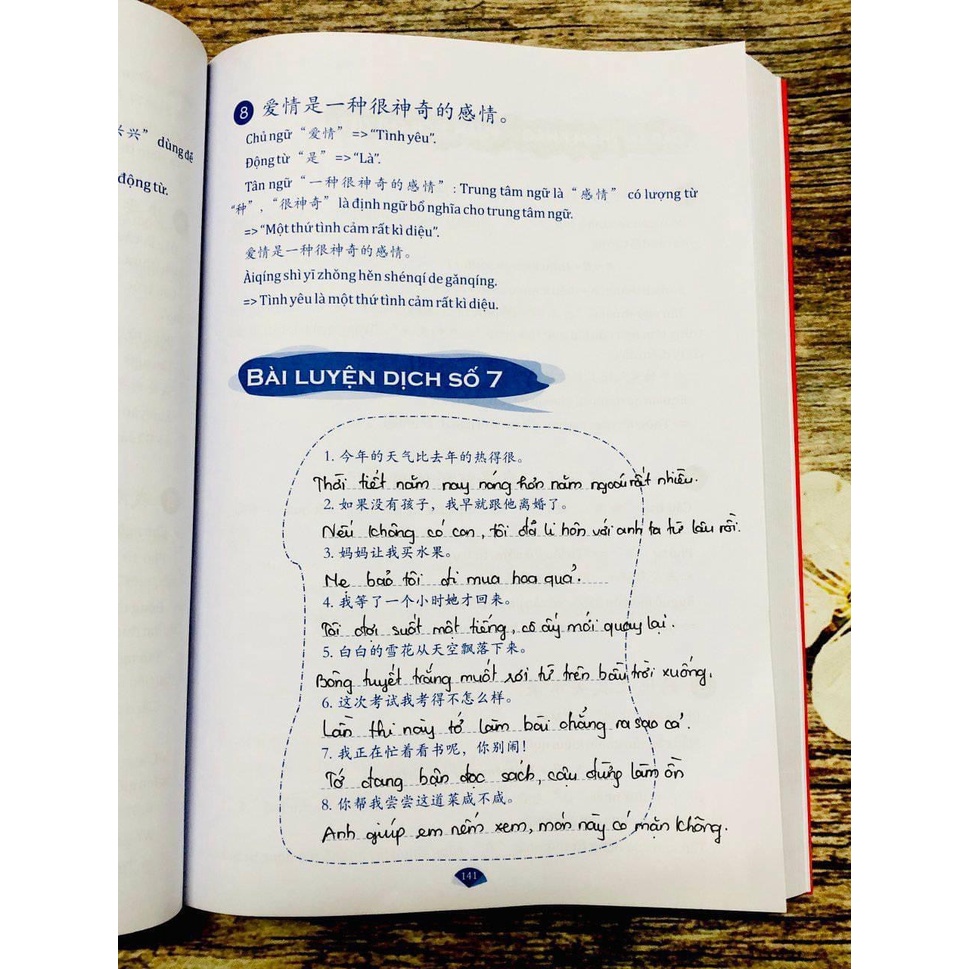 兴兴” dùng để
động từ.
8 爱情是一种很神奇的感情。
Chủ ngữ “爱情” => “Tình yêu”.
Động từ “是” => “Là”.
Tân ngữ “一种很神奇的感情” : Trung tâm ngữ là “感情” có lượng từ
“种”, “很神奇” là định ngữ bổ nghĩa cho trung tâm ngữ.
=> “Một thứ tình cảm rất kì diệu”.
爱情是一种很神奇的感情。
Àiqíng shì yī zhǒng hěn shénqí de gǎnqíng.
=> Tình yêu là một thứ tình cảm rất kì diệu.
BÀI LUYỆN DỊCH SỐ 7
1. 今年的天气比去年的热得很。
Thời tiết năm nay nóng hơn năm ngoái rất nhiều.
2. 如果没有孩子，我早就跟他离婚了。
Nếu không có con, tôi đã li hôn với anh ta từ lâu rồi.
3. 妈妈让我买水果。
Mẹ bảo tôi đi mua hoa quả.
4. 我等了一个小时她才回来。
Tôi đợi suốt một tiếng, cô ấy mới quay lại.
5. 白白的雪花从天空飘落下来。
Bông tuyết trắng muốt rơi từ trên bầu trời xuống.
6. 这次考试我考得不怎么样。
Lần thi này tớ làm bài chẳng ra sao cả.
7. 我正在忙着看书呢，你别闹！
Tớ đang bận đọc sách, cậu đừng làm ồn
8. 你帮我尝尝这道菜咸不咸。
Anh giúp em nếm xem, món này có mặn không.
141